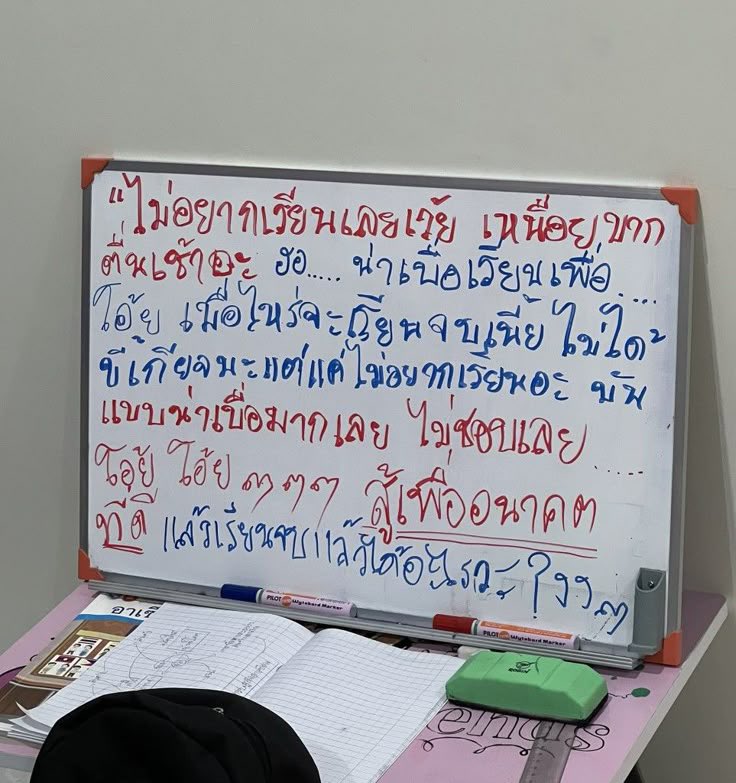 "ไม่อยากเรียนเลยเว้ย เหนื่อย บาก
ตื่นเช้าอะ ฮอ..... น่าเบื่อเรียนเพื่อ.....
โอ้ย เมื่อไหร่จะเรียนจบเนี้ย ไม่ได้
ขี้เกียจนะแต่แค่ไม่อยากเรียนอะ มัน
แบบน่าเบื่อมากเลย ไม่ชอบเลย .....
โอ้ย โอ้ย ๆๆๆ สู้เพื่ออนาคต
ที่ดี แล้วเรียนจบแล้วได้อะไรวะ ?งงๆ
PILOT Wytebord Marker
PILOT Wytebord Marker